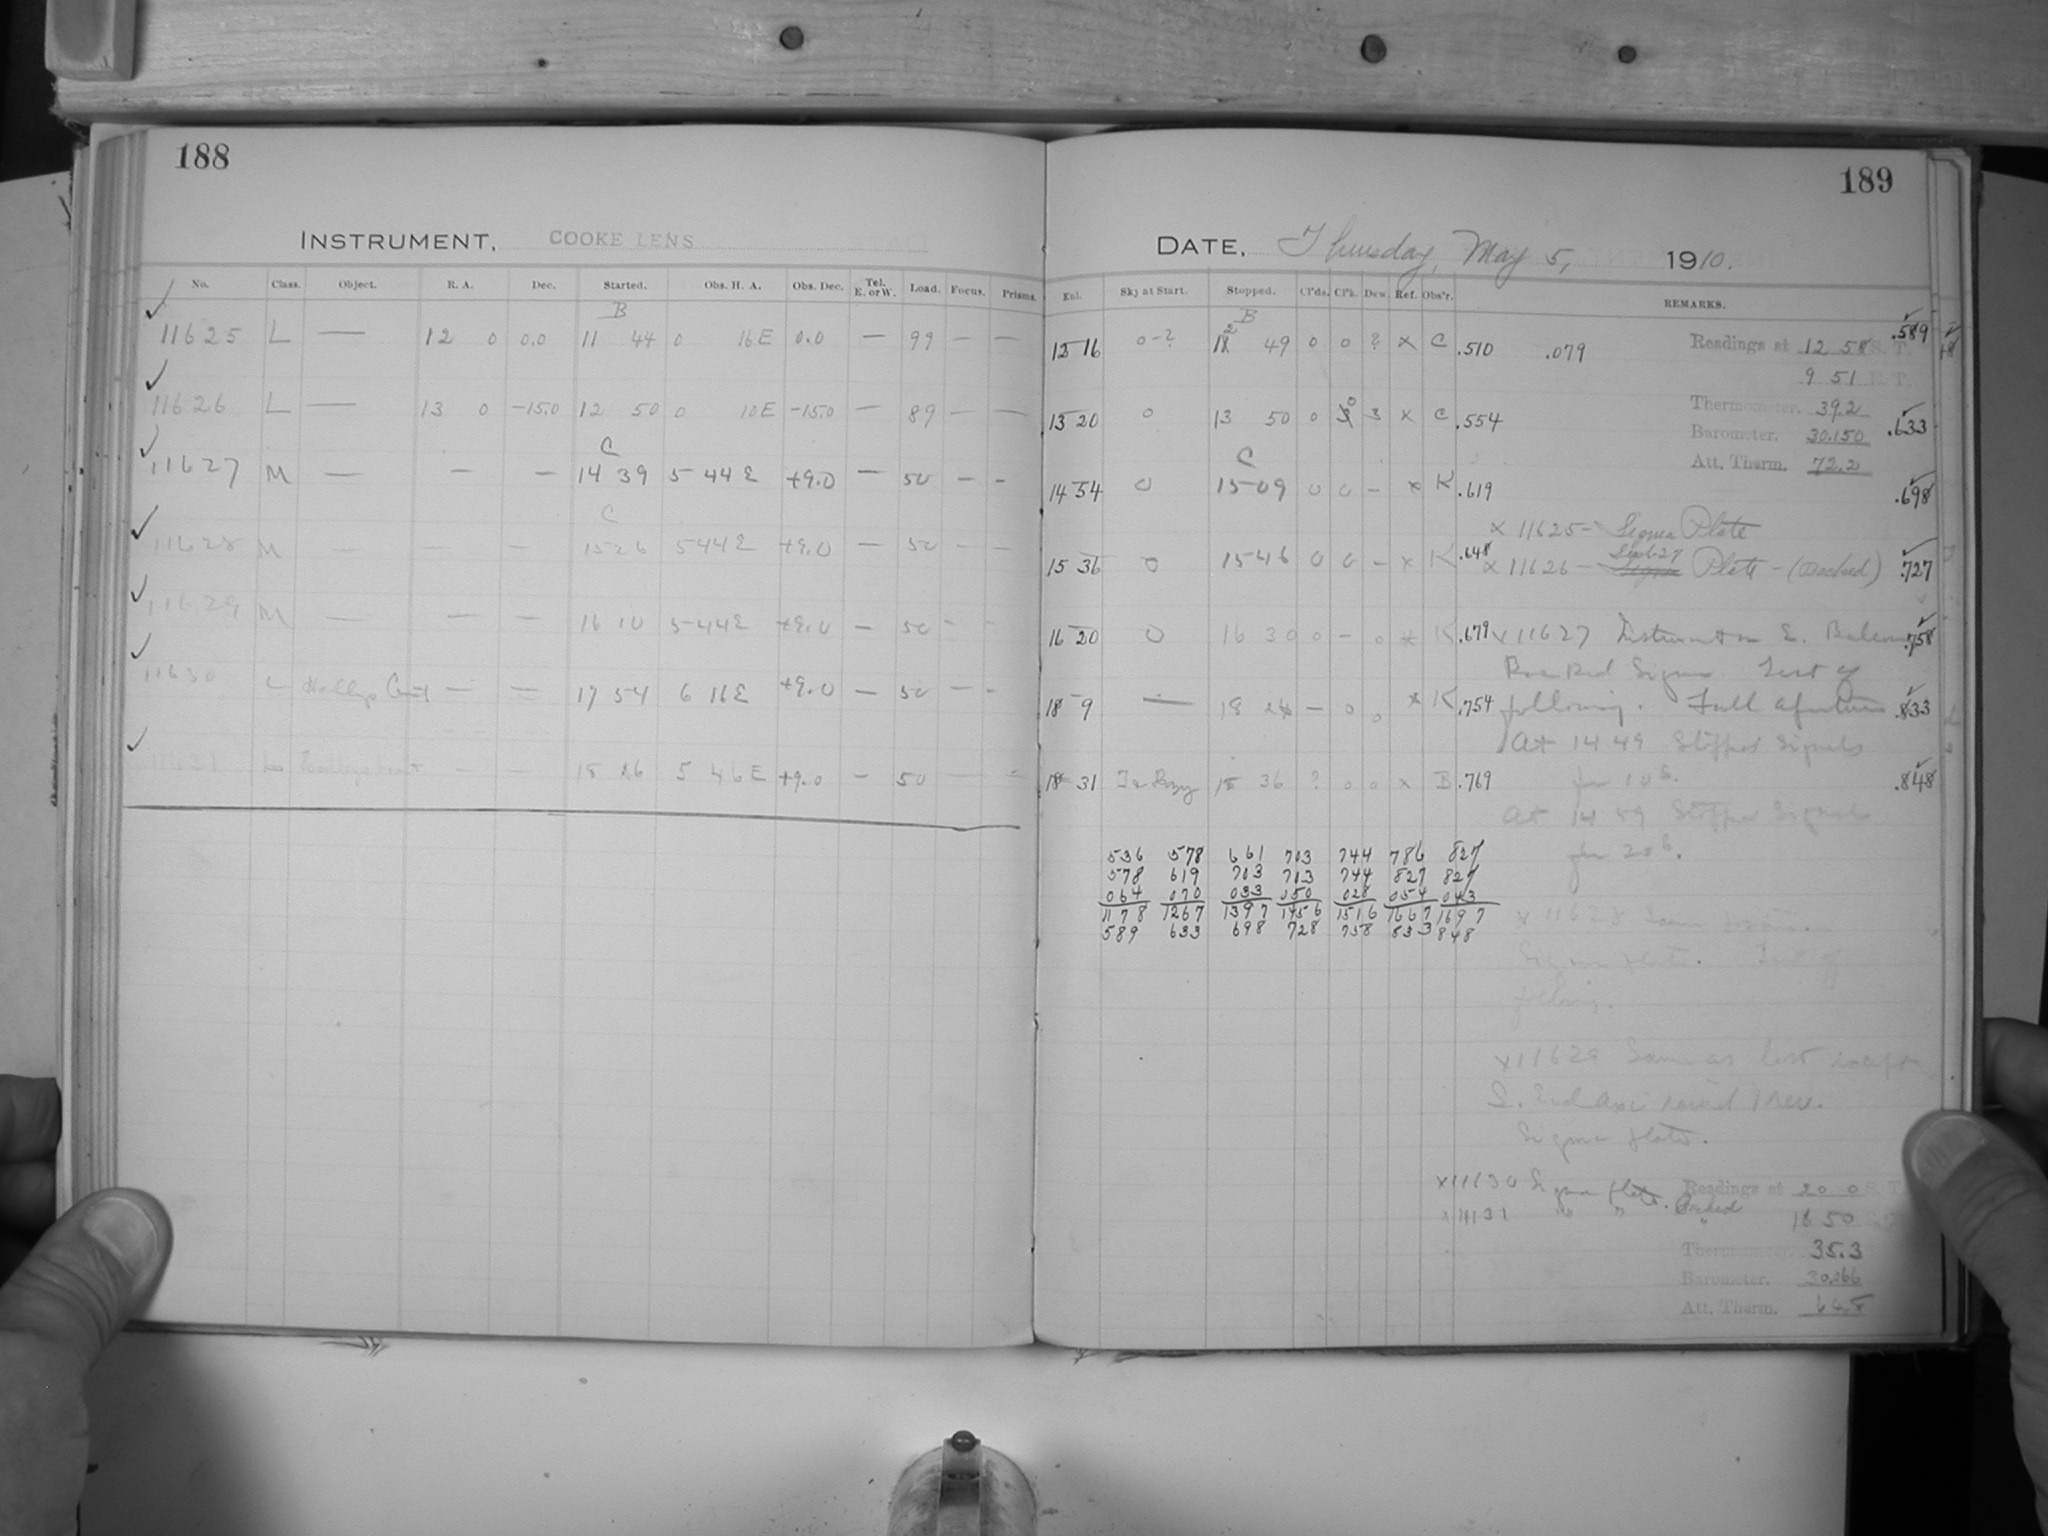 188
INSTRUMENT, COOKE LENS
No. Class. Object. R. A. Dec. Started. Obs. H. A. Obs. Dec. Tel. E. or W. Load. Focus. Prisms.
B
11625 L — 12 0 0.0 11 44 0 16 E 0.0 — 99 — —
11626 L — 13 0 -15.0 12 50 0 10 E -15.0 — 89 — —
C
11627 M — — — 14 39 5 44 E +9.0 — 50 — -
C
11628 M — — — 15 26 5 44 E +9.0 — 50 - -
11629 M — — — 16 10 5 44 E +9.0 — 50 - -
11630 L Halleys Comet — — 17 54 6 16 E +9.0 — 50 — -
11631 L Halleys Comet - — 18 26 5 46 E +9.0 - 50 — -
189
DATE, Thursday, May 5, 1910.
Exl. Sky at Start. Stopped. Cl'ds. Cl'k. Dew. Ref. Obs'r. REMARKS.
B
12 16 0-? 12 49 0 0 ? x C .510 .079 Readings at 12 58 S. T. .589
9 51 E. T.
13 20 0 13 50 0 0 3 x C .554 Thermometer. 39.2 .633
Barometer. 30.150
Att. Therm. 72.2
C
14 54 0 15 09 0 0 - x K .619 .698
x 11625 - Sigma Plate
15 36 0 15 46 0 0 - x K .648 x 11626 - Seed 27 Plate - (Backed) .727
16 20 0 16 30 0 - 0 x K .679 x 11627 Instrument on E. .758
Backed Sigma. Test of
18 9 — 18 24 — 0 0 x K .754 following. Full aperture .833
At 14 49 Stopped Signals
for 10s.
18 31 18 36 ? 0 0 x B .769 .848
At 14 59 Stopped Signals
for 20s.
536 578 661 703 744 786 827
578 619 703 713 744 827 827
064 070 033 050 028 054 043
1178 1267 1397 1456 1516 1667 1697
589 633 698 728 758 833 848
x 11628 Same
Sigma plate. Test of
following.
x 11629 Same as last except
Sigma plate.
x 11630 Sigma plate. Backed
x 11631 " " "
Readings at 20 0 S. T.
16 50
Thermometer. 35.3
Barometer. 30.066
Att. Therm.